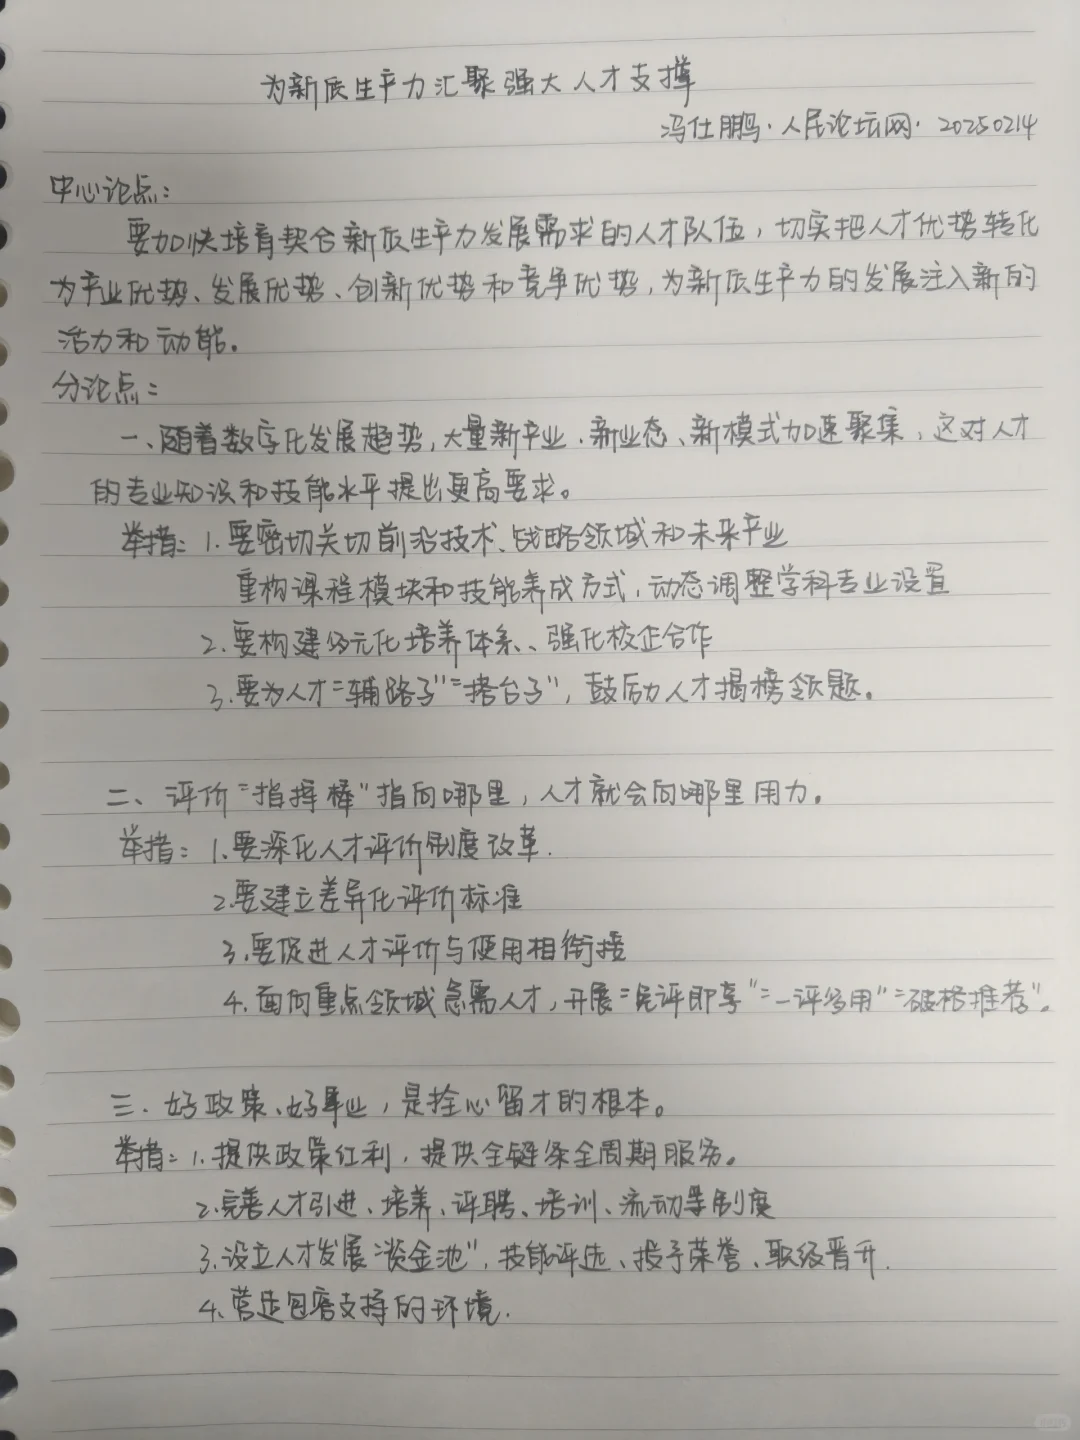 为新质生产力汇聚强大人才支撑
冯仕鹏·人民论坛网·20250214
中心论点：
要加快培育契合新质生产力发展需求的人才队伍，切实把人才优势转化
为产业优势、发展优势、创新优势和竞争优势，为新质生产力的发展注入新的
活力和动能。
分论点：
一、随着数字化发展趋势，大量新产业、新业态、新模式加速聚集，这对人才
的专业知识和技能水平提出更高要求。
举措：1.要密切关切前沿技术、战略领域和未来产业
重构课程模块和技能养成方式，动态调整学科专业设置
2.要构建多元化培养体系、强化校企合作
3.要为人才“铺路子”“搭台子”，鼓励人才揭榜领题。
二、评价“指挥棒”指向哪里，人才就会向哪里用力。
举措：1.要深化人才评价制度改革.
2.要建立差异化评价标准
3.要促进人才评价与使用相衔接
4.面向重点领域急需人才，开展“免评即享”“一评多用”“破格推荐”。
三、好政策、好事业，是拴心留才的根本。
举措：1.提供政策红利，提供全链条全周期服务。
2.完善人才引进、培养、评聘、培训、流动等制度
3.设立人才发展“资金池”，技能评选、授予荣誉、职级晋升.
4.营造包容支持的环境.